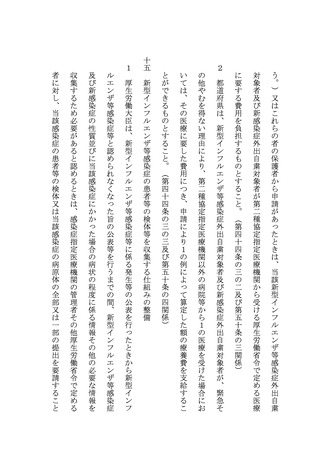 う。）又はこれらの者の保護者から申請があったときは、当該新型インフルエンザ等感染症外出自粛
対象者及び新感染症外出自粛対象者が第二種協定指定医療機関から受ける厚生労働省令で定める医療
に要する費用を負担するものとすること。（第四十四条の三の二及び第五十条の三関係）
２　都道府県は、新型インフルエンザ等感染症外出自粛対象者及び新感染症外出自粛対象者が、緊急そ
の他やむを得ない理由により、第二種協定指定医療機関以外の病院等から１の医療を受けた場合にお
いては、その医療に要した費用につき、申請により１の例によって算定した額の療養費を支給するこ
とができるものとすること。（第四十四条の三の三及び第五十条の四関係）
十五　新型インフルエンザ等感染症の患者等の検体等を収集する仕組みの整備
１　厚生労働大臣は、新型インフルエンザ等感染症等に係る発生等の公表を行ったときから新型インフ
ルエンザ等感染症等と認められなくなった旨の公表等を行うまでの間、新型インフルエンザ等感染症
及び新感染症の性質並びに当該感染症にかかった場合の病状の程度に係る情報その他の必要な情報を
収集するため必要があると認めるときは、感染症指定医療機関の管理者その他厚生労働省令で定める
者に対し、当該感染症の患者等の検体又は当該感染症の病原体の全部又は一部の提出を要請すること